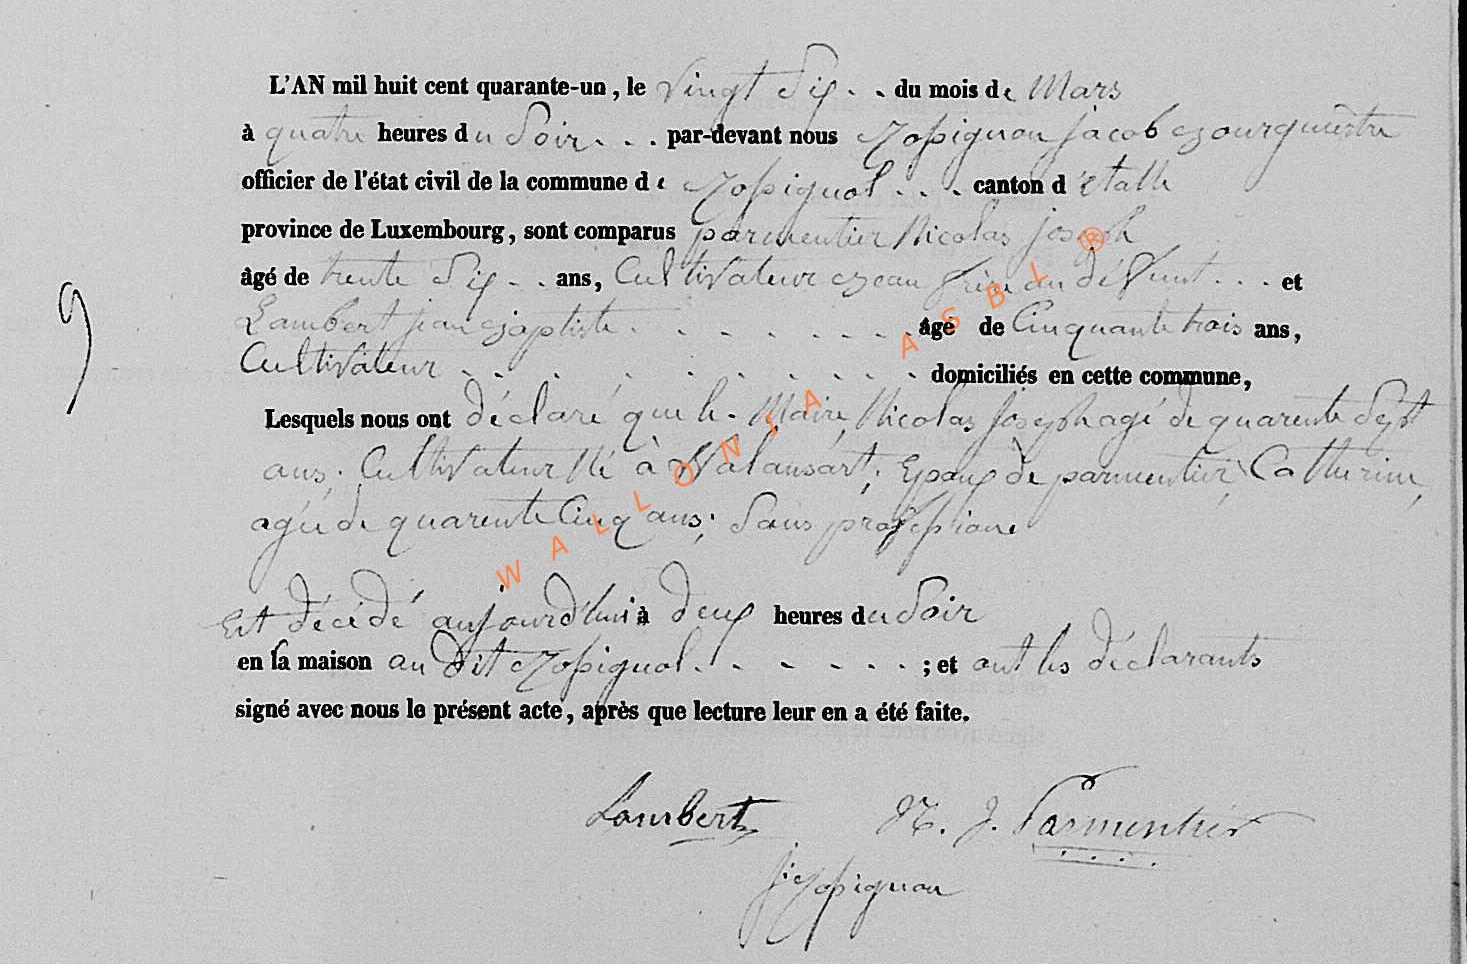 L'AN mil huit cent quarante-un, le vingt Six . . du mois de Mars
à quatre heures du Soir . . . par-devant nous Rossignon jacob bourguemestre
officier de l'état civil de la commune de Rossignol . . . canton d'étalle
province de Luxembourg, sont comparus parmentier Nicolas joseph
âgé de trente Six . . ans, Cultivateur beau frère du défunt . . . et
Lambert jean baptiste . . . . . . . . âgé de Cinquante trois ans,
9
Cultivateur . . . . . . . . . . domiciliés en cette commune,
Lesquels nous ont déclaré que le . Maire, Nicolas joseph agé de quarente Sept
ans, Cultivateur Né à Valansart, Epoux de parmentier Catherine,
agée de quarente Cinq ans; Sans professione
Est décédé aujourd'hui à deux heures du Soir
en sa maison au dit Rossignol . . . . . . ; et ont les déclarants
signé avec nous le présent acte, après que lecture leur en a été faite.
Lambert N. J. Parmentier
j Rossignon
WALLONIA ASBL ®